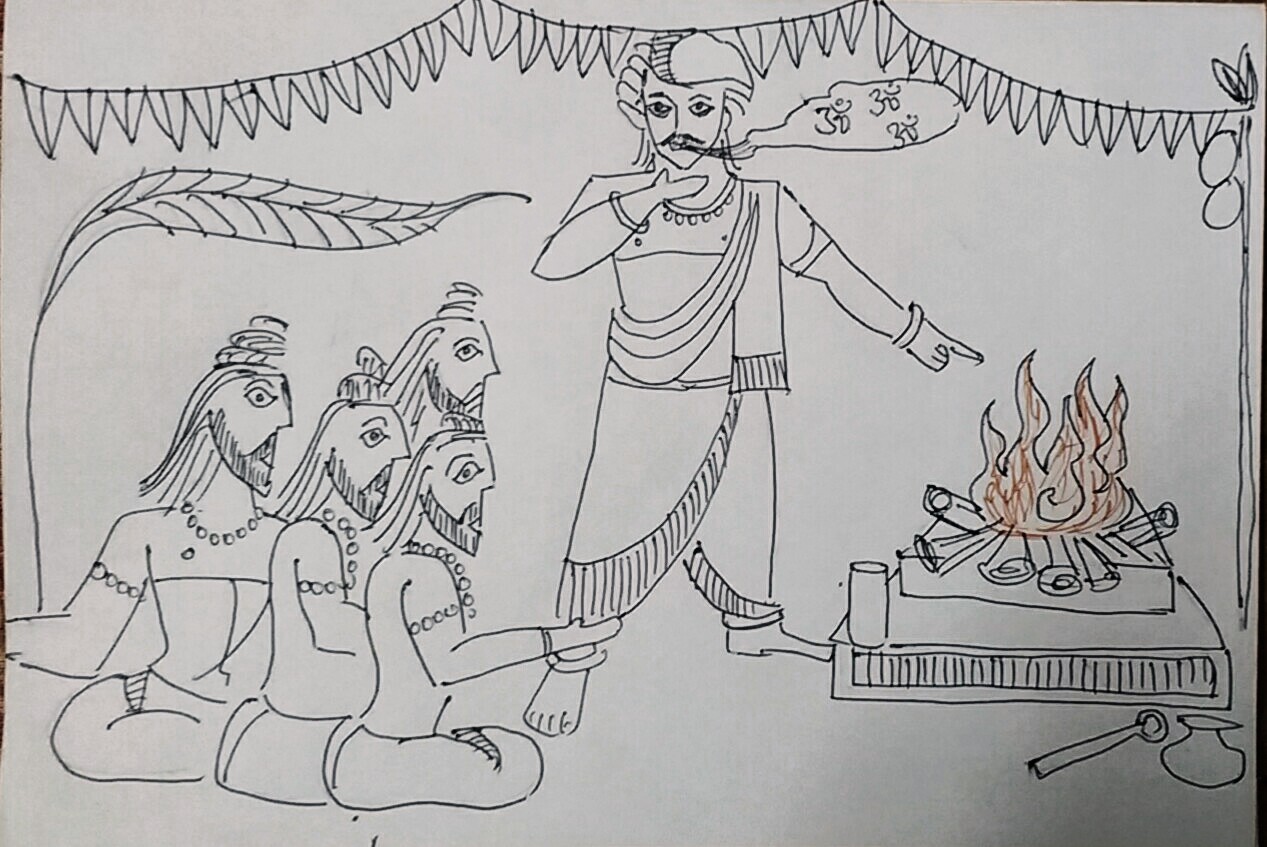 ॐ ॐ
ॐ